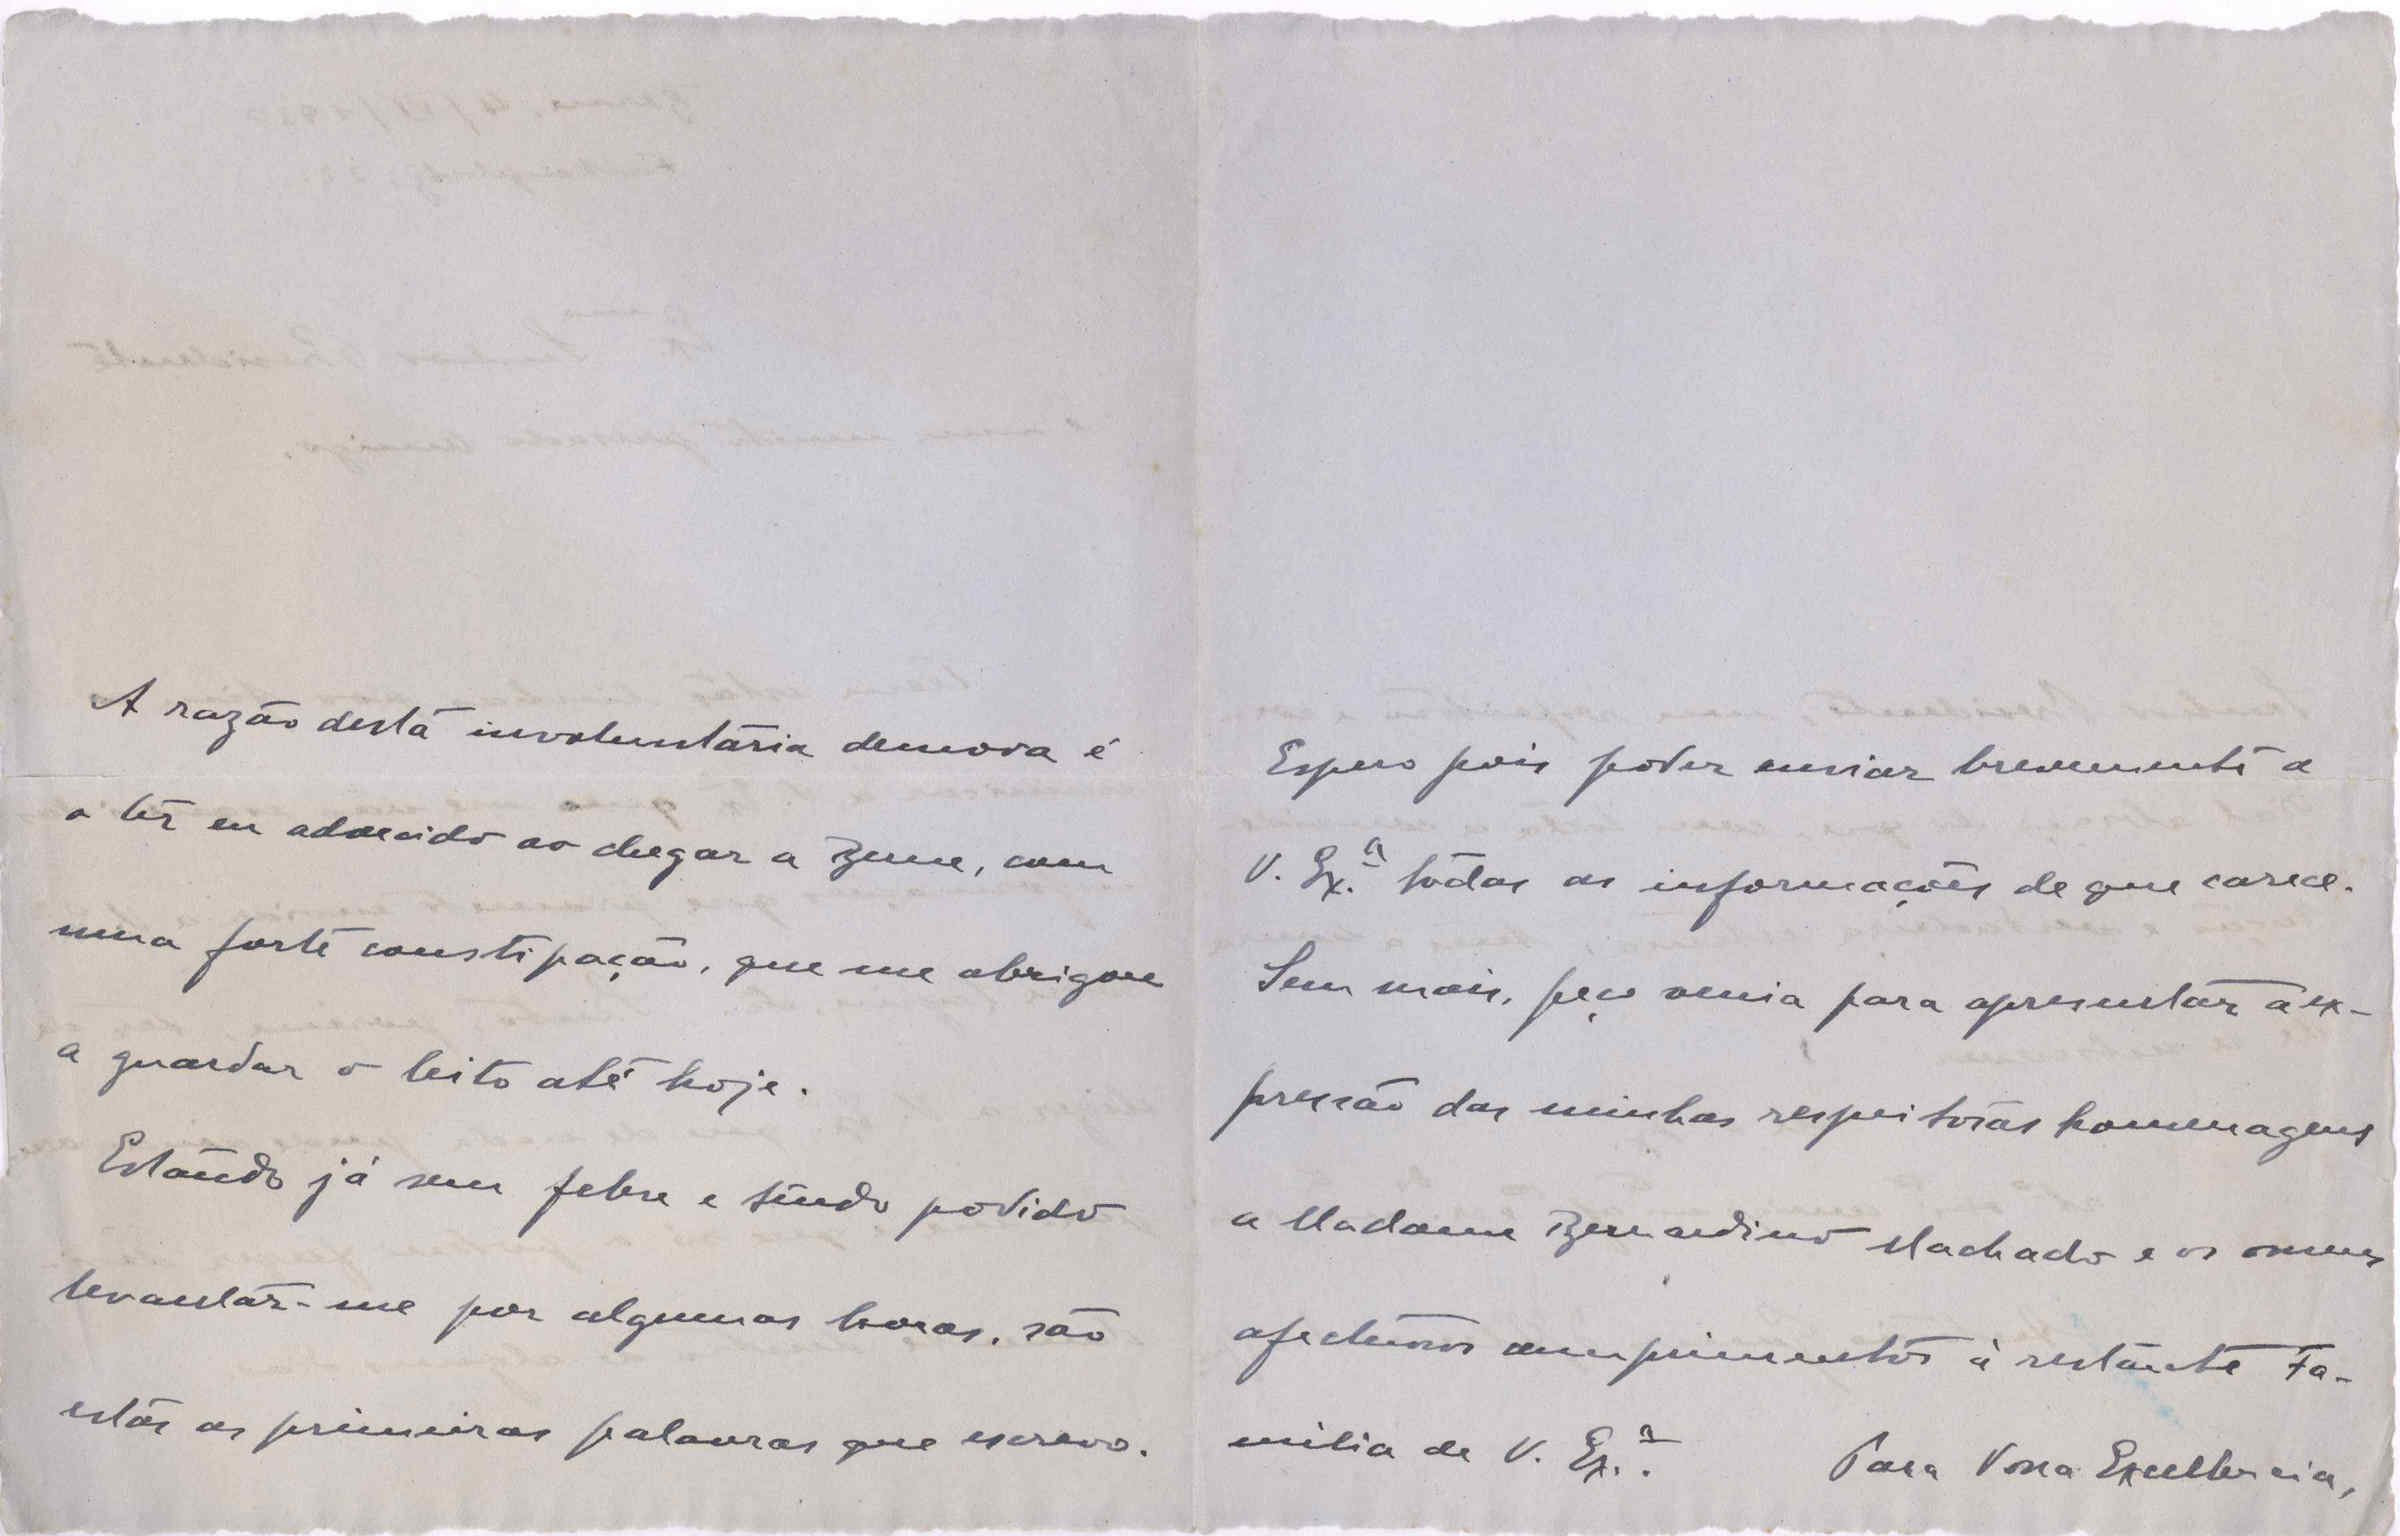 A razão desta involuntária demora é
o ter eu adoecido ao chegar a Berne, com
uma forte constipação, que me obrigou
a guardar o leito até hoje.
Estando já sem febre e tendo podido
levantar-me por algumas horas, são
estas as primeiras palavras que escrevo.
Espero pois poder enviar brevemente a
V. Ex.ª todas as informações de que carece.
Sem mais, peço venia para apresentar a ex-
pressão das minhas respeitosas homenagens
a Madame Bernardino Machado e os meus
afectuosos cumprimentos à restante Fa-
milia de V. Ex.ª.
Para Vossa Excellencia,